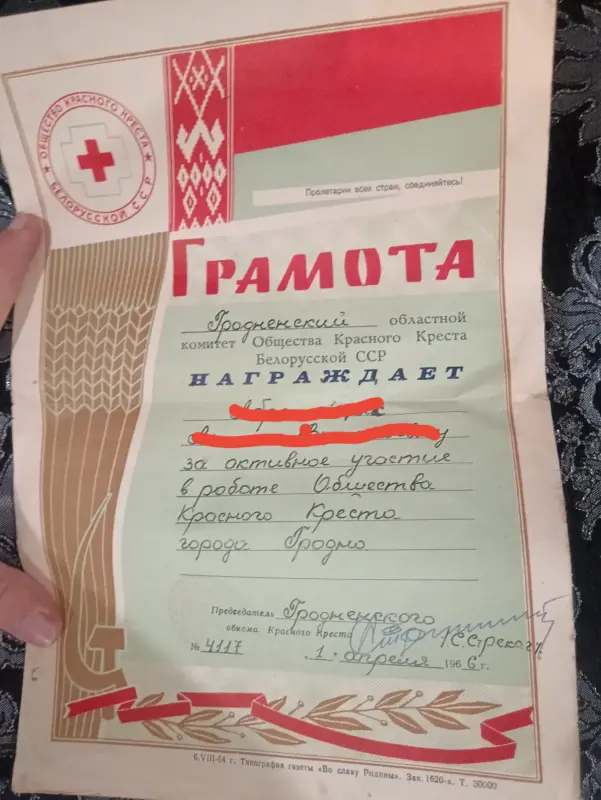 ★ ОБЩЕСТВО КРАСНОГО КРЕСТА ★
БЕЛОРУССКОЙ ССР
Пролетарии всех стран, соединяйтесь!
ГРАМОТА
Гродненский областной
комитет Общества Красного Креста
Белорусской ССР
НАГРАЖДАЕТ
за активное участие
в работе Общества
Красного Креста
города Гродно
Председатель Гродненского
обкома Красного Креста
№ 4117 1 · апреля 1966 г.
6.VIII-64 г. Типография газеты «Во славу Родины». Зак. 1620-а. Т. 30000